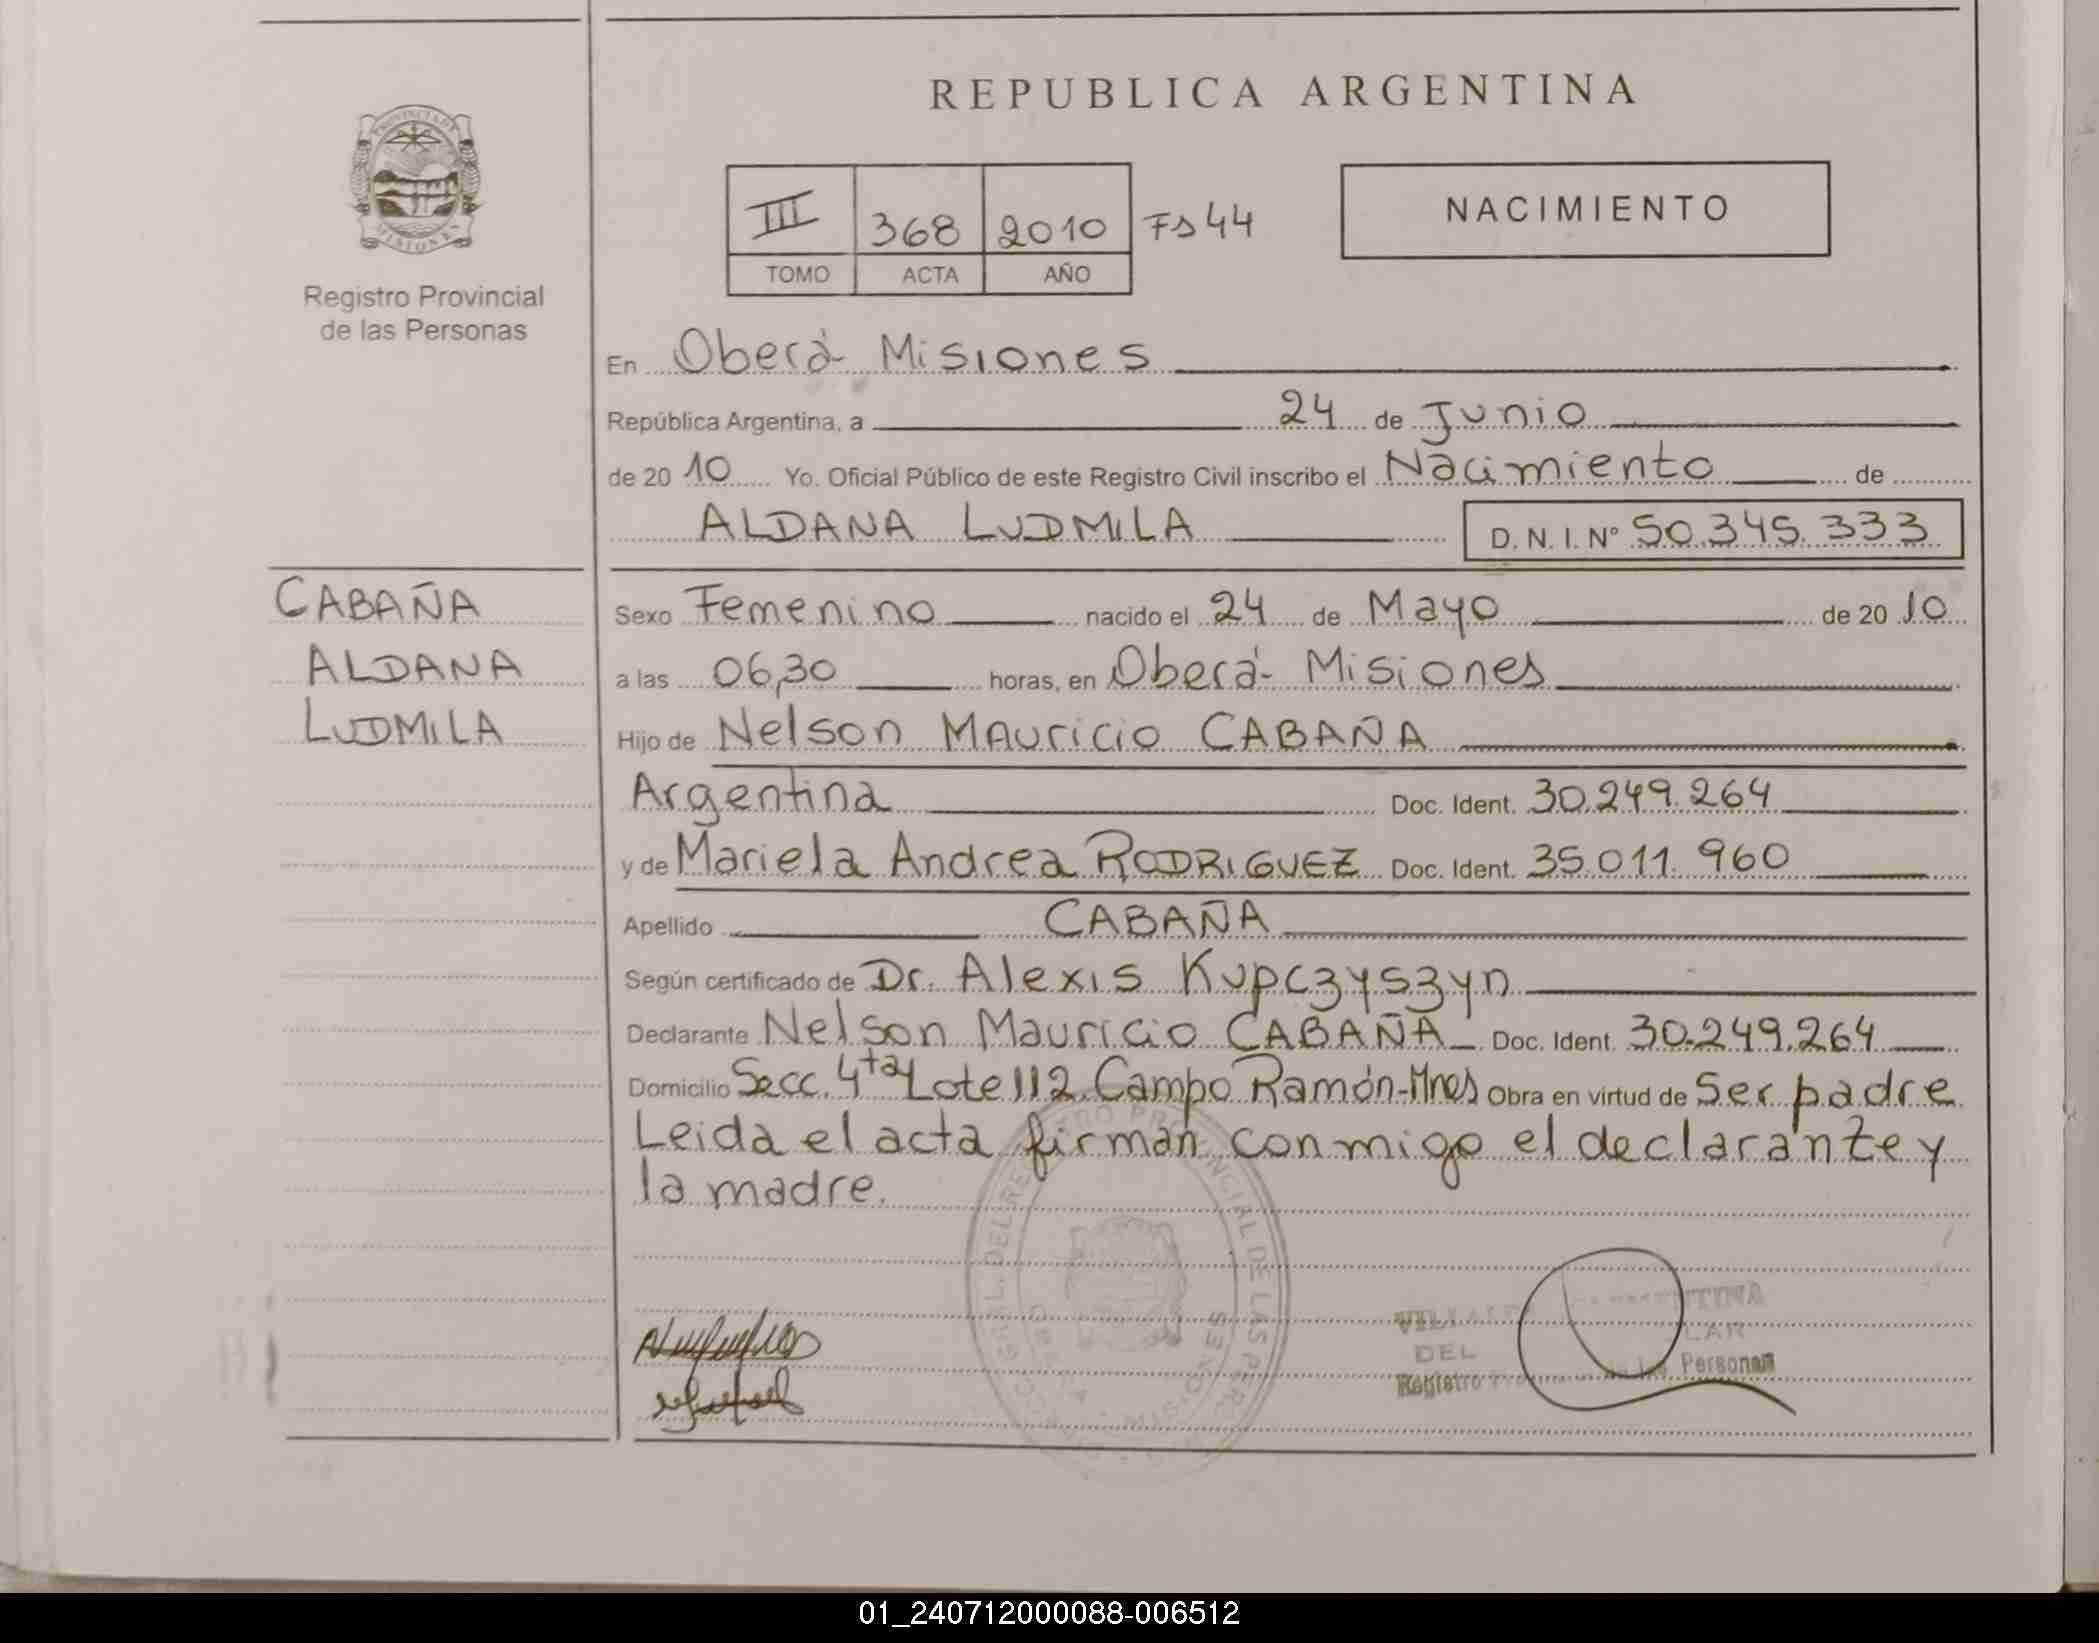 REPUBLICA ARGENTINA
PROVINCIA DE MISIONES
Registro Provincial
de las Personas
III 368 2010 Fs 44
TOMO ACTA AÑO
NACIMIENTO
En Oberá- Misiones
República Argentina, a 24 de Junio
de 20 10 Yo. Oficial Público de este Registro Civil inscribo el Nacimiento de
ALDANA LUDMILA D.N.I. Nº 50.345.333
CABAÑA
ALDANA
LUDMILA
Sexo Femenino nacido el 24 de Mayo de 20 10
a las 06,30 horas, en Oberá- Misiones
Hijo de Nelson Mauricio CABAÑA
Argentina Doc. Ident. 30.249.264
y de Mariela Andrea RODRIGUEZ Doc. Ident. 35.011.960
Apellido CABAÑA
Según certificado de Dr. Alexis Kupczyszyn
Declarante Nelson Mauricio CABAÑA Doc. Ident. 30.249.264
Domicilio Secc. 4ta Lote 112 Campo Ramón-Mnes Obra en virtud de Ser padre
Leida el acta firman conmigo el declarante y
la madre.
DEL REGISTRO PROVINCIAL DE LAS
MISIONES
DEL
Registro Personas
01_240712000088-006512